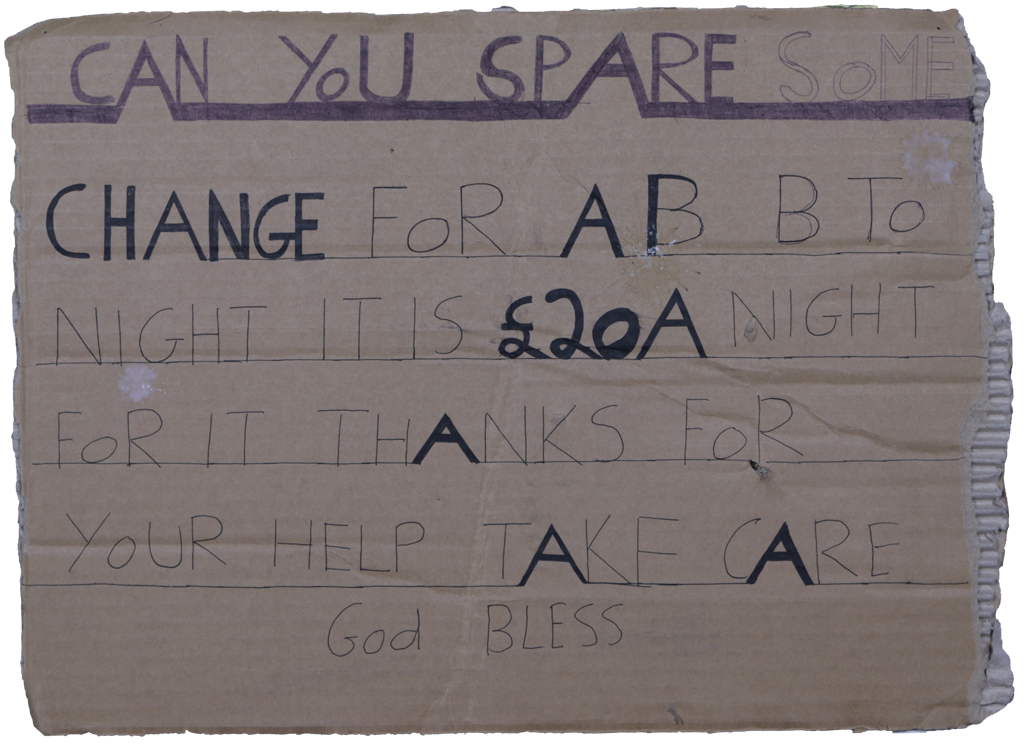 CAN YoU SPARE SoME
CHANGE FoR A B B To
NIGHT IT IS £20A NIGHT
FoR IT THANKS FoR
YoUR HELP TAKE CARE
God BLESS